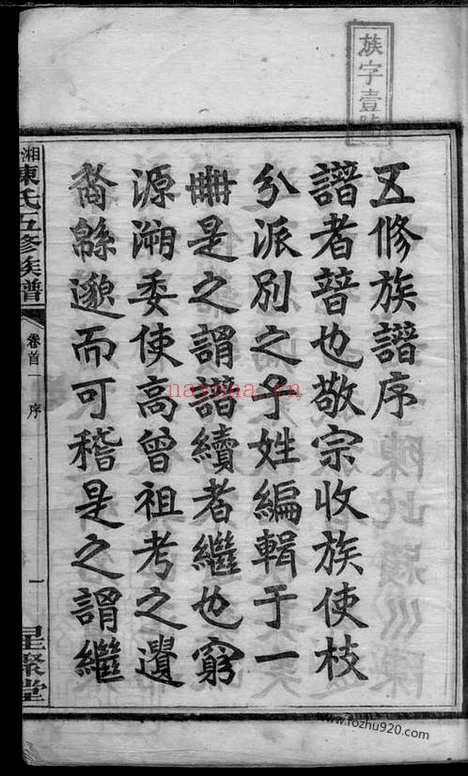 族字壹
五修族譜序
譜者普也敬宗收族使枝
分派別之子姓編輯于一
冊是之謂譜續者繼也窮
源溯委使高曾祖考之遺
裔緜邈而可稽是之謂繼
湘陳氏五修族譜
卷首一
序
一
星聚堂
nayona.cn
www.fozhu920.com